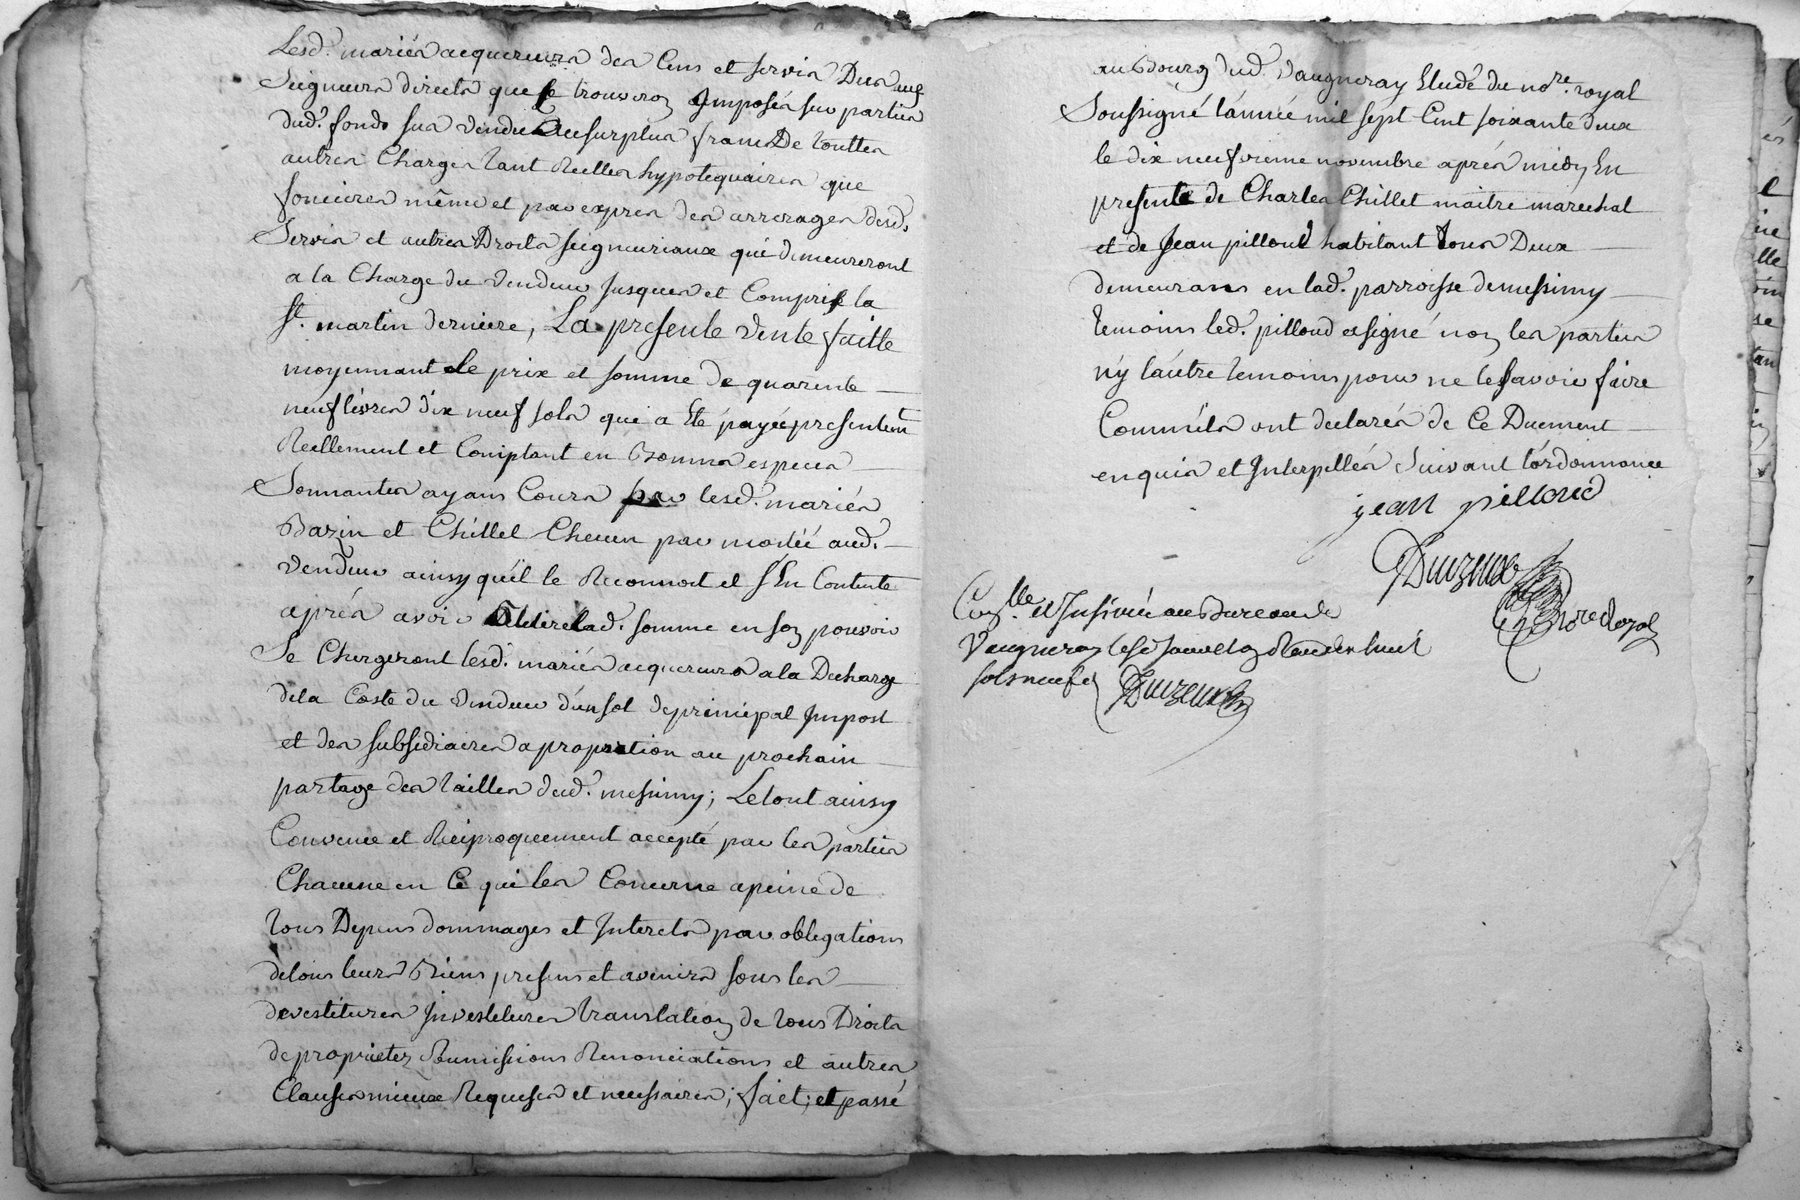 Lesd. mariés acquereurs des Cens et servis Deus aux
Seigneurs directs que se trouveron Imposés sur partie
dud. fonds sus vendu Ausurplus franc De touttes
autres Charges tant Reelles hypotequaires que
foncieres même et par expres des arrerages desd.
Servis et autres Droits seigneuriaux qui demeureront
a la Charge du vendeur Jusques et Compris la
St. martin derniere, La presente vente faitte
moyennant le prix et somme de quarente
neuf livres dix neuf sols qui a Eté payée presentemt
Reellement et Comptant en Bonnes especes
Sonnantes ayans Cours par lesd. mariés
Bazin et Chillet Checun par moitié aud.
vendeur ainsy quil le Reconnoit et s'En Contente
aprés avoir Retiré lad. somme en son pouvoir
Se Chargeront lesd. mariés acquereurs a la Decharge
dela Coste du vendeur d'un sol de principal Impost
et des subsidiaires a proportion au prochain
partage des tailles dud. messimy; Letout ainsy
Convenu et Reciproquement accepté par les parties
Chacune en Ce qui les Concerne a peine de
tous Depens dommages et Interets par obligations
detous leurs Biens presens et avenirs sous les
devestitures Investitures translation de tous Droits
de proprietez Soumissions Renonciations et autres
Clauses mieux Requises et necessaires; fait; et passé
au Bourg dud. Vaugneray Etude du nore. royal
Soussigné l'année mil sept Cent soixante deux
le dix neufvieme novembre aprés midy En
presente de Charles Chillet maitre marechal
et de Jean pilloud habitant tous Deux
demeurans en lad. parroisse demessimy
temoins led. pilloud a signé non les parties
n'y l'autre temoins pour ne le savoir faire
Comm'ils ont declarés de Ce Duement
enquis et Interpellés Suivant l'ordonnance
jean pilloud
Duizeux
nore Royal
Conlle. et Insinué au Bureau de
Vaugneray lesd Jour et an Reçu dix huit
sols neuf d
Duizeux